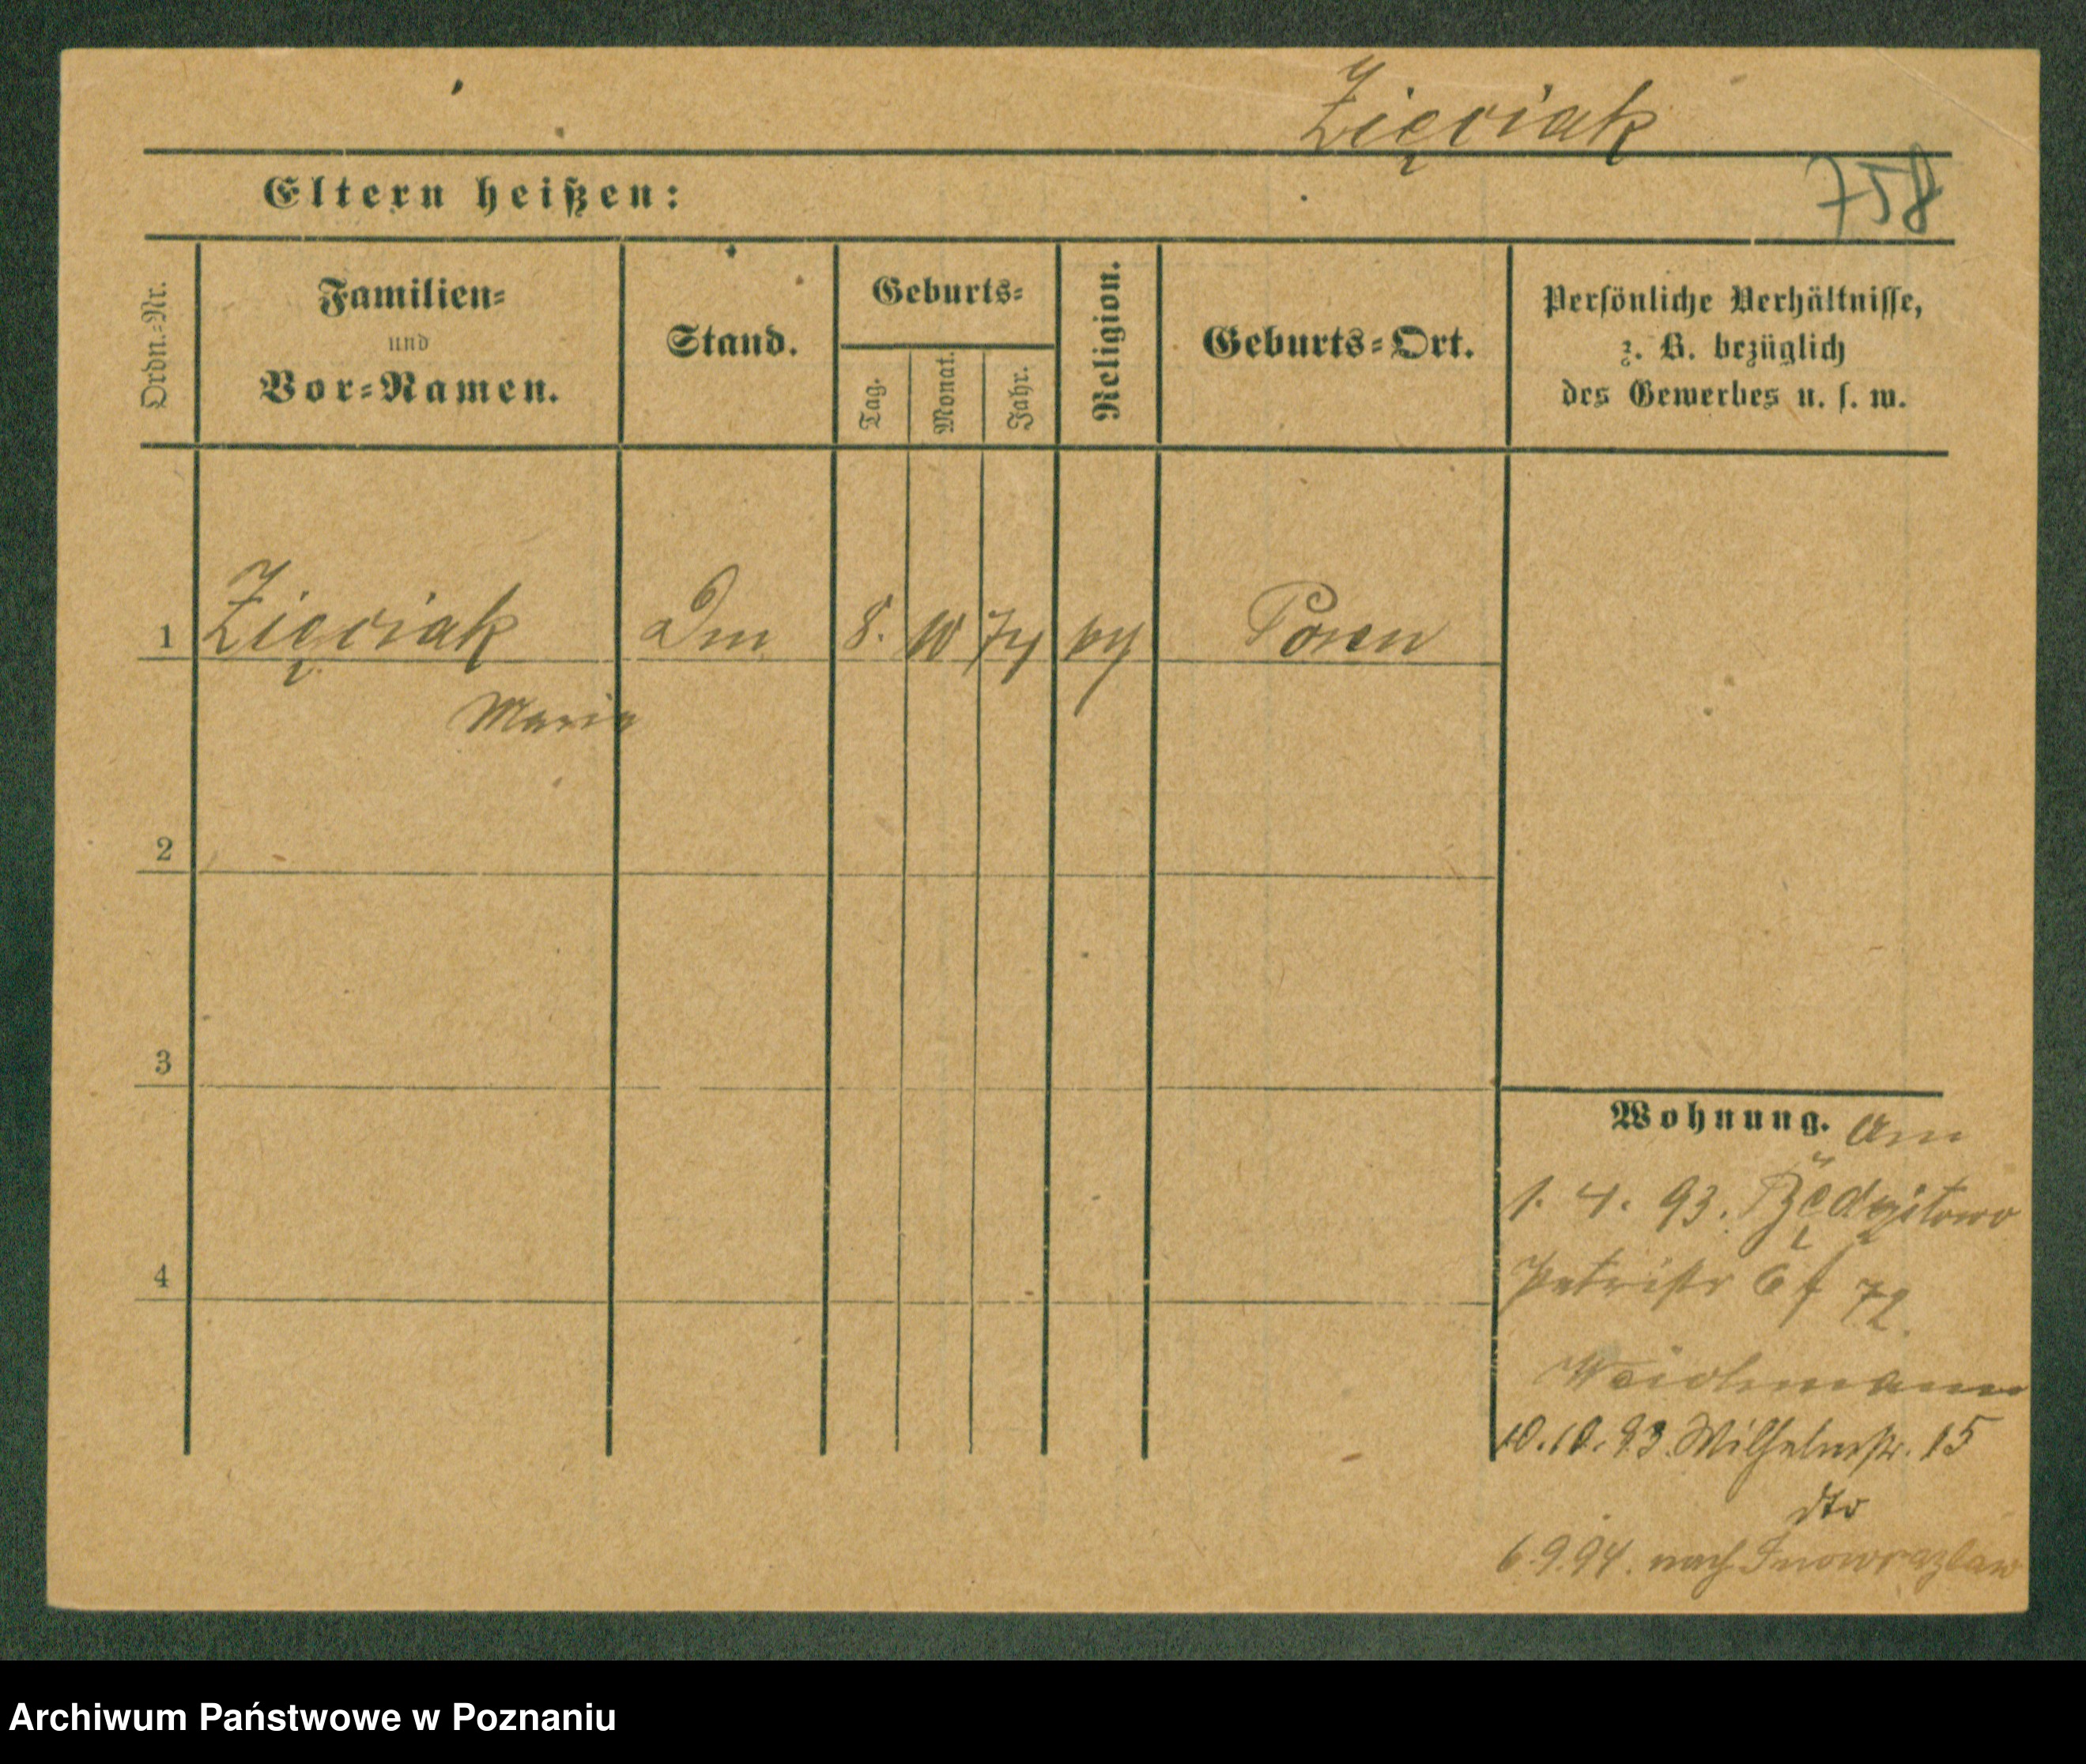 Zięciak
758
Eltern heißen:
Ordn.-Nr.
Familien-
und
Vor-Namen.
Stand.
Geburts-
Tag.
Monat.
Jahr.
Religion.
Geburts-Ort.
Persönliche Verhältnisse,
z. B. bezüglich
des Gewerbes u. s. w.
1 Zięciak 8. 10 74 Posen
Maria
2
3
4
Wohnung. am
1. 4. 93.
Petristr 6 72.
10.10.93 Wilhelmstr. 15
dto
6.9.94. nach Inowrazlaw
Archiwum Państwowe w Poznaniu